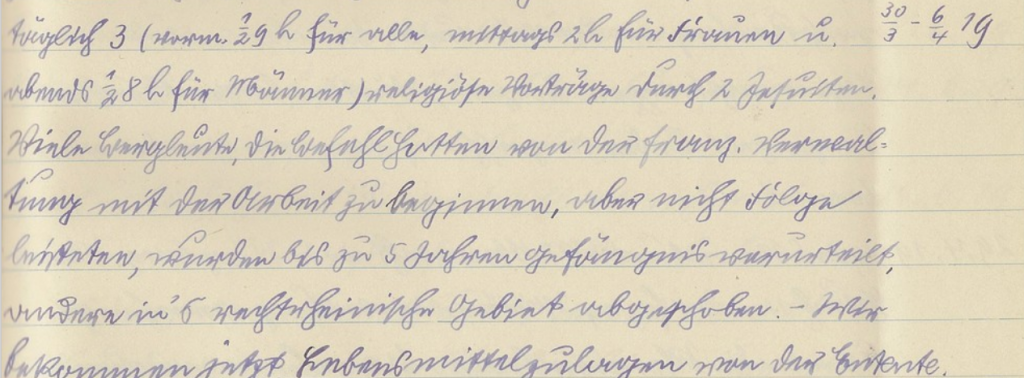 täglich 3 (vorm. ½9 h für alle, mittags 2 h für Frauen u. 30/3 - 6/4 19
abends ½8 h für Männer) religiöse Vorträge durch 2 Jesuiten.
Viele Bergleute, die Befehl hatten von der franz. Verwal=
tung mit der Arbeit zu beginnen, aber nicht Folge
leisteten, wurden bis zu 5 Jahren Gefängnis verurteilt,
andere in's rechtsrheinische Gebiet abgeschoben. - Wir
bekommen jetzt Lebensmittelzulagen von der Entente.